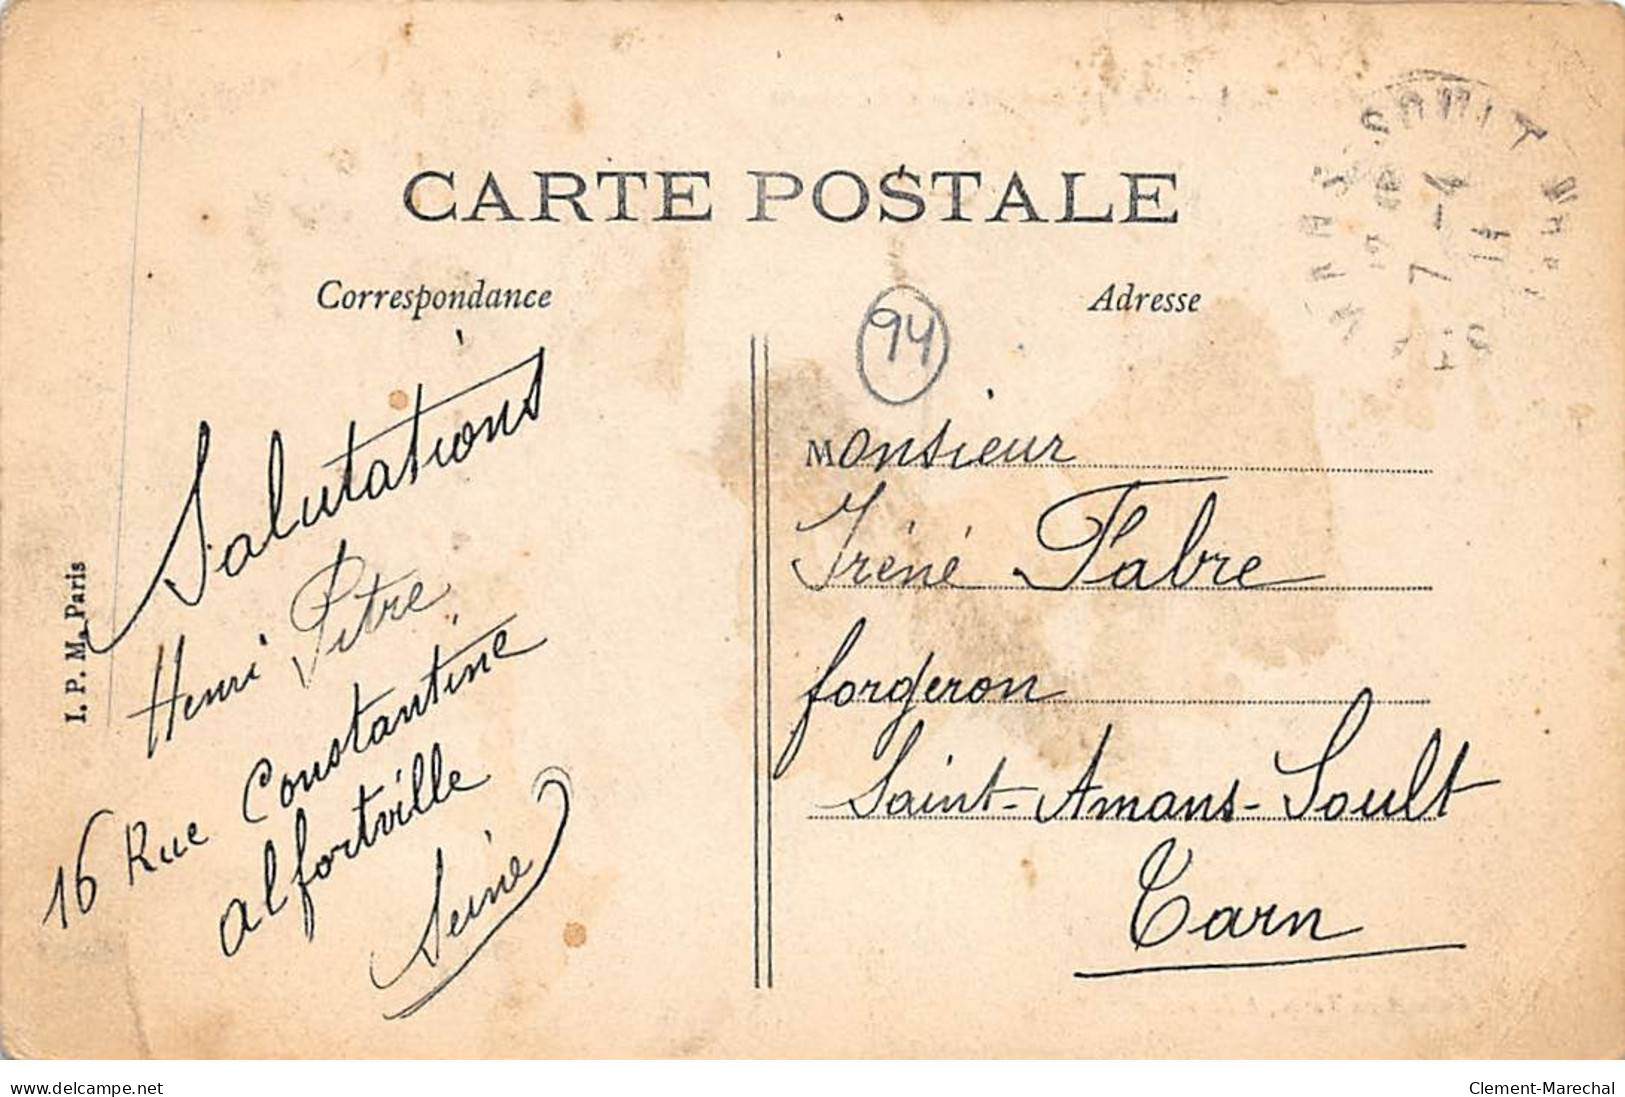 CARTE POSTALE
Correspondance
Adresse
94
Salutations
Henri Pitre
16 Rue Constantine
alfortville
Seine
I. P. M. Paris
Monsieur
Iréné Fabre
forgeron
Saint-Amans-Soult
Tarn
7 -4
11
www.delcampe.net
Clement-Marechal